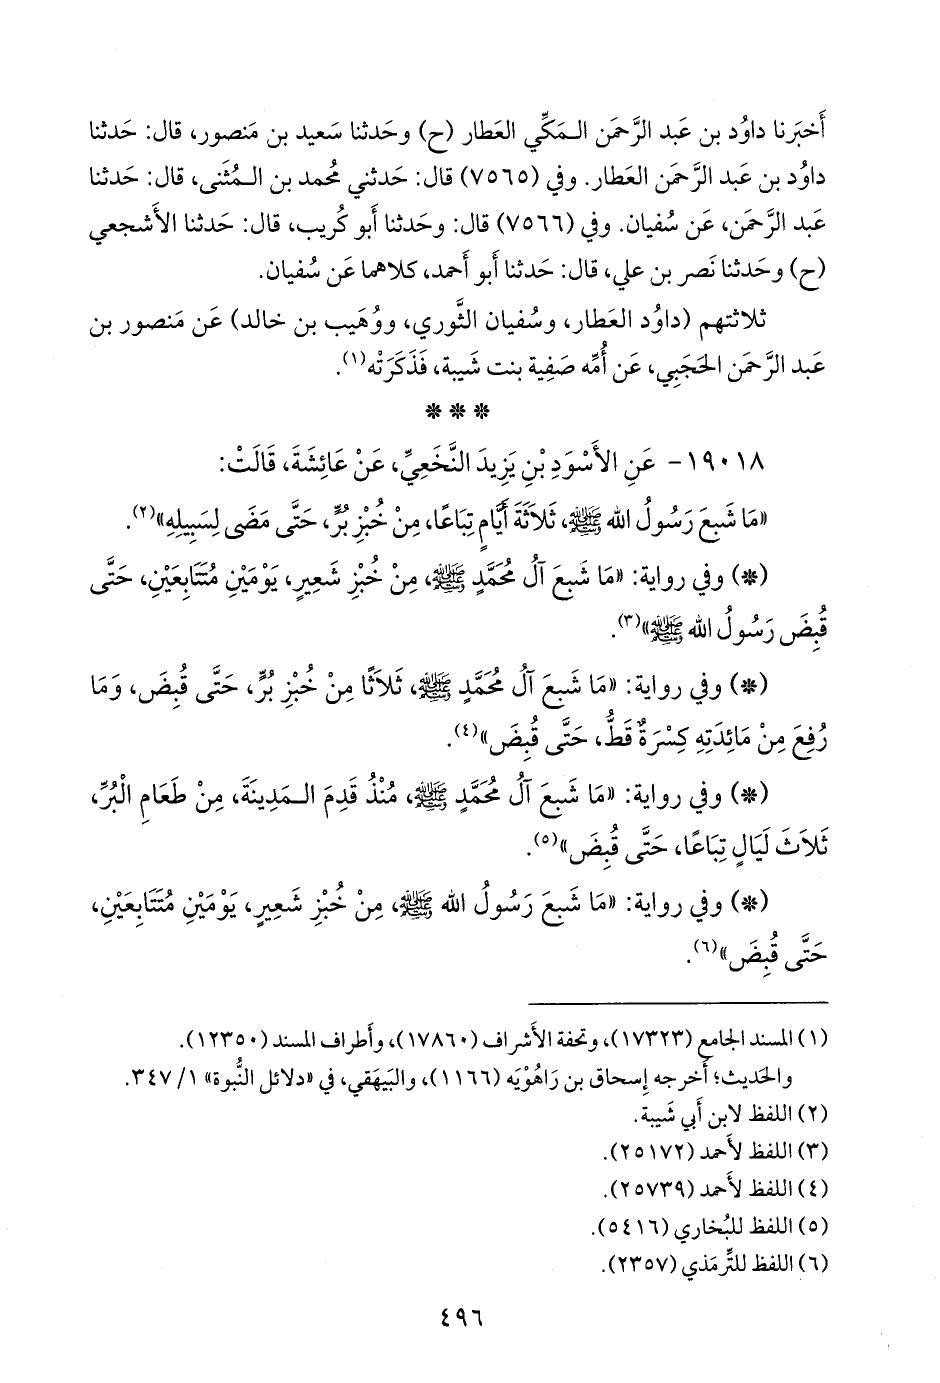 أَخبَرنا داوُد بن عَبد الرَّحمَن الـمَكِّي العَطار (ح) وحَدثنا سَعيد بن مَنصور، قال: حَدثنا
داوُد بن عَبد الرَّحمَن العَطار. وفي (٧٥٦٥) قال: حَدثني مُحمد بن الـمُثَنى، قال: حَدثنا
عَبد الرَّحمَن، عَن سُفيان. وفي (٧٥٦٦) قال: وحَدثنا أَبو كُريب، قال: حَدثنا الأَشجعي
(ح) وحَدثنا نَصر بن علي، قال: حَدثنا أَبو أَحمد، كلاهما عَن سُفيان.
ثلاثتهم (داوُد العَطار، وسُفيان الثَّوري، ووُهَيب بن خالد) عَن مَنصور بن
عَبد الرَّحمَن الحَجَبي، عَن أُمِّه صَفية بنت شَيبة، فَذَكَرَتْه(١).
* * *
١٩٠١٨- عَنِ الأَسْوَدِ بْنِ يَزِيدَ النَّخَعِيِّ، عَنْ عَائِشَةَ، قَالَتْ:
«مَا شَبِعَ رَسُولُ الله ﷺ، ثَلاَثَةَ أَيَّامٍ تِبَاعًا، مِنْ خُبْزِ بُرٍّ، حَتَّى مَضَى لِسَبِيلِهِ»(٢).
(*) وفي رواية: «مَا شَبِعَ آلُ مُحَمَّدٍ ﷺ، مِنْ خُبْزِ شَعِيرٍ، يَوْمَيْنِ مُتَتَابِعَيْنِ، حَتَّى
قُبِضَ رَسُولُ الله ﷺ»(٣).
(*) وفي رواية: «مَا شَبِعَ آلُ مُحَمَّدٍ ﷺ، ثَلاَثًا مِنْ خُبْزِ بُرٍّ، حَتَّى قُبِضَ، وَمَا
رُفِعَ مِنْ مَائِدَتِهِ كِسْرَةٌ قَطُّ، حَتَّى قُبِضَ»(٤).
(*) وفي رواية: «مَا شَبِعَ آلُ مُحَمَّدٍ ﷺ، مُنْذُ قَدِمَ الـمَدِينَةَ، مِنْ طَعَامِ الْبُرِّ،
ثَلاَثَ لَيَالٍ تِبَاعًا، حَتَّى قُبِضَ»(٥).
(*) وفي رواية: «مَا شَبِعَ رَسُولُ الله ﷺ، مِنْ خُبْزِ شَعِيرٍ، يَوْمَيْنِ مُتَتَابِعَيْنِ،
حَتَّى قُبِضَ»(٦).
(١) المسند الجامع (١٧٣٢٣)، وتحفة الأَشراف (١٧٨٦٠)، وأَطراف المسند (١٢٣٥٠).
والحَديث؛ أَخرجه إِسحاق بن رَاهُوْيَه (١١٦٦)، والبَيهَقي، في «دلائل النُّبوة» ١/ ٣٤٧.
(٢) اللفظ لابن أَبي شَيبة.
(٣) اللفظ لأَحمد (٢٥١٧٢).
(٤) اللفظ لأَحمد (٢٥٧٣٩).
(٥) اللفظ للبُخاري (٥٤١٦).
(٦) اللفظ للتِّرمَذي (٢٣٥٧).
٤٩٦